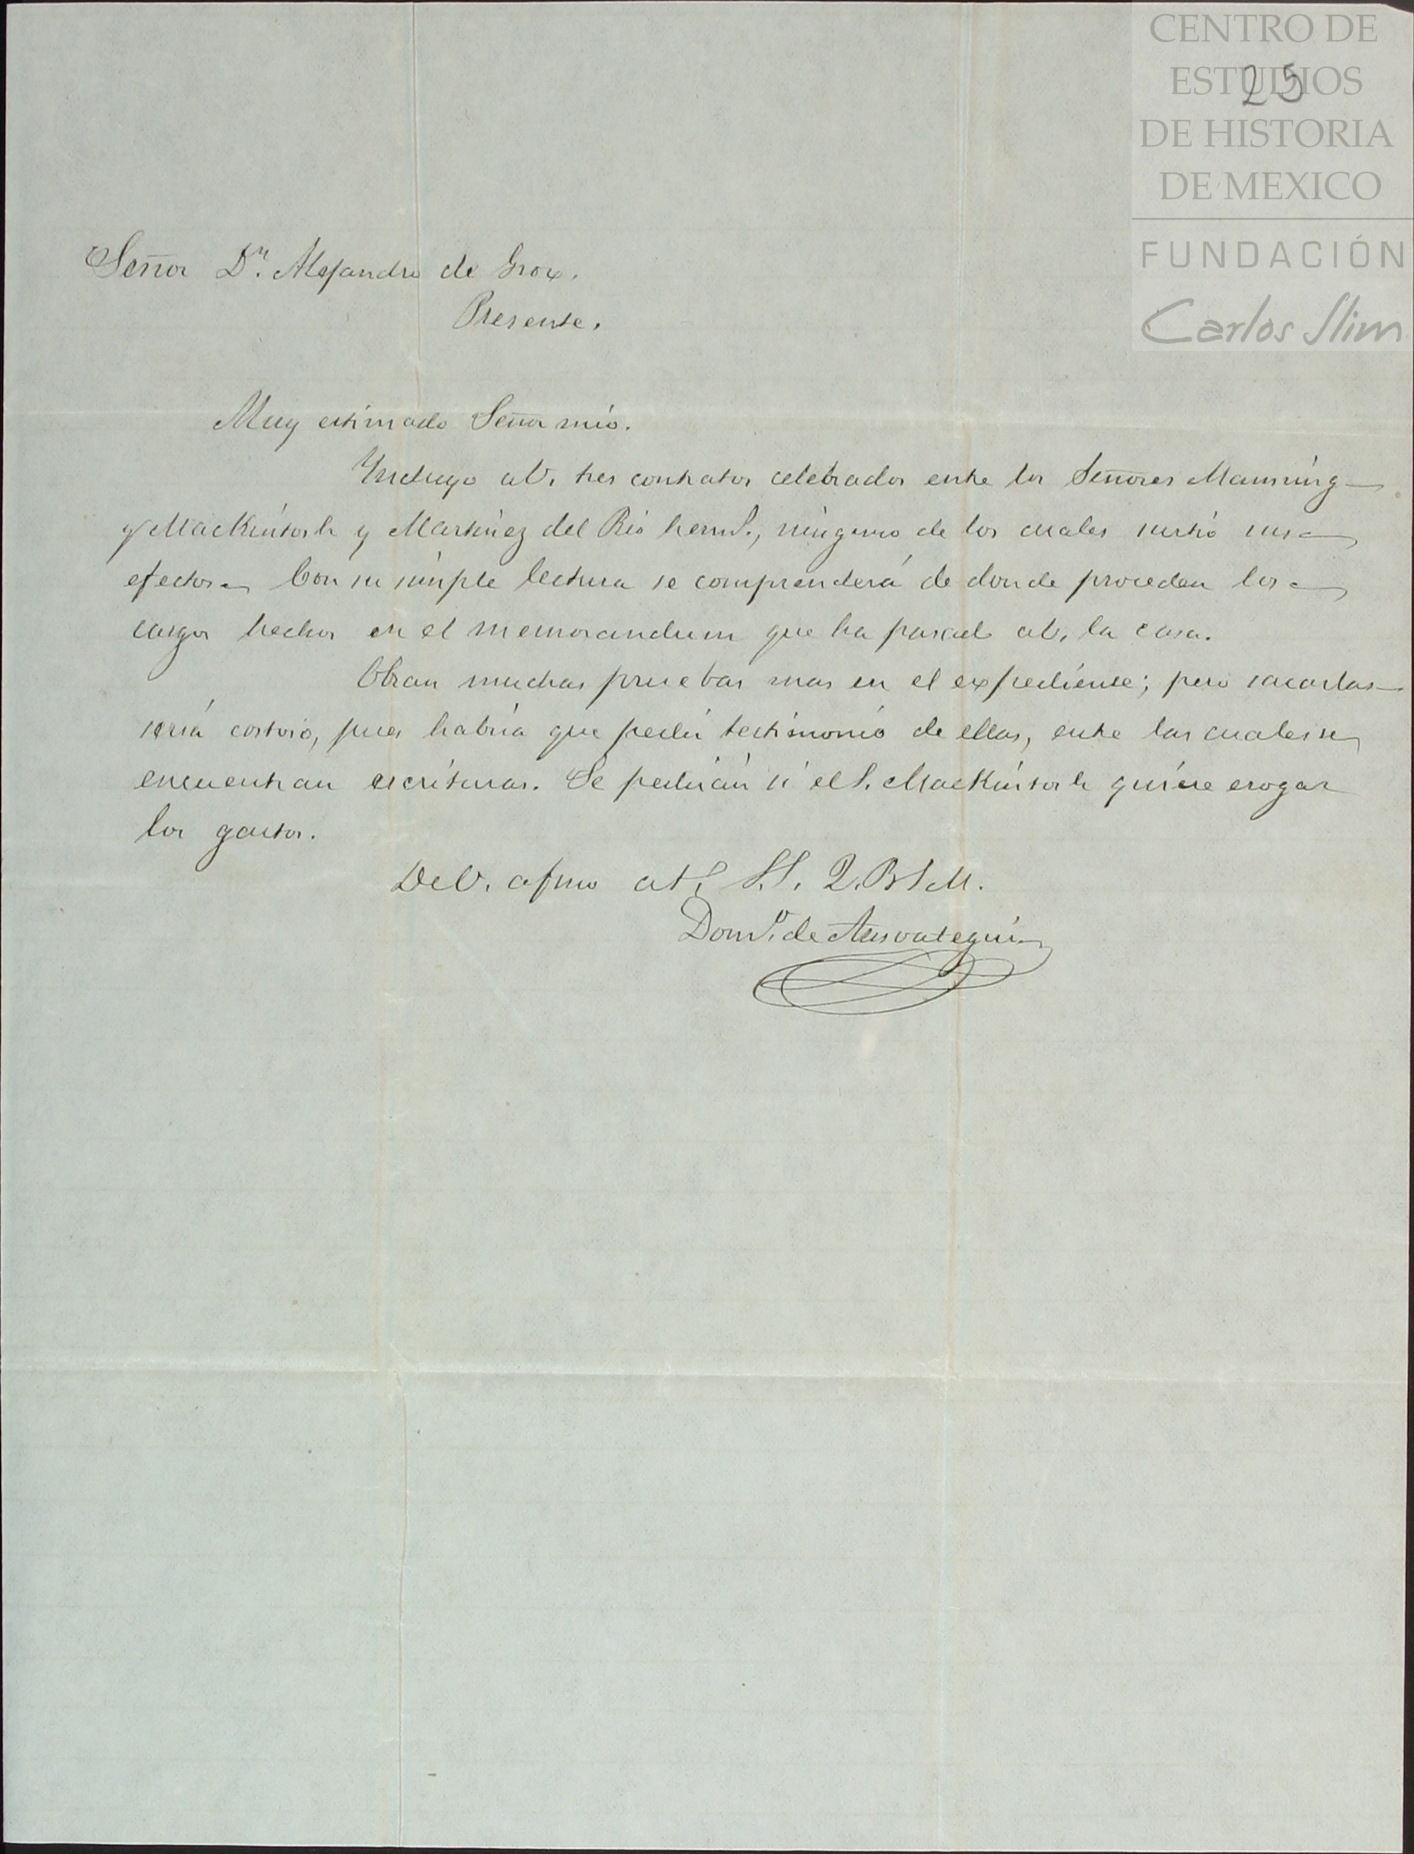 CENTRO DE
ESTUDIOS
25
DE HISTORIA
DE MEXICO
FUNDACIÓN
Carlos Slim
Señor Dn. Alejandro de Grox.
Presente.
Muy estimado Señor mio.
Yncluyo a V. tres contratos celebrados entre los Señores Manning
y Mackintosh y Martinez del Rio herms., ninguno de los cuales surtió sus
efectos. Con su simple lectura se comprenderá de donde proceden los
cargos hechos en el memorandum que ha pasado a V. la casa.
Obran muchas pruebas mas en el expediente; pero sacarlas
seria costoso, pues habria que pedir testimonio de ellas, entre las cuales se
encuentran escrituras. Se pedirán si el S. Mackintosh quiere erogar
los gastos.
De V. afmo at. S.S. Q.B.S.M.
Domo. de Ansoategui